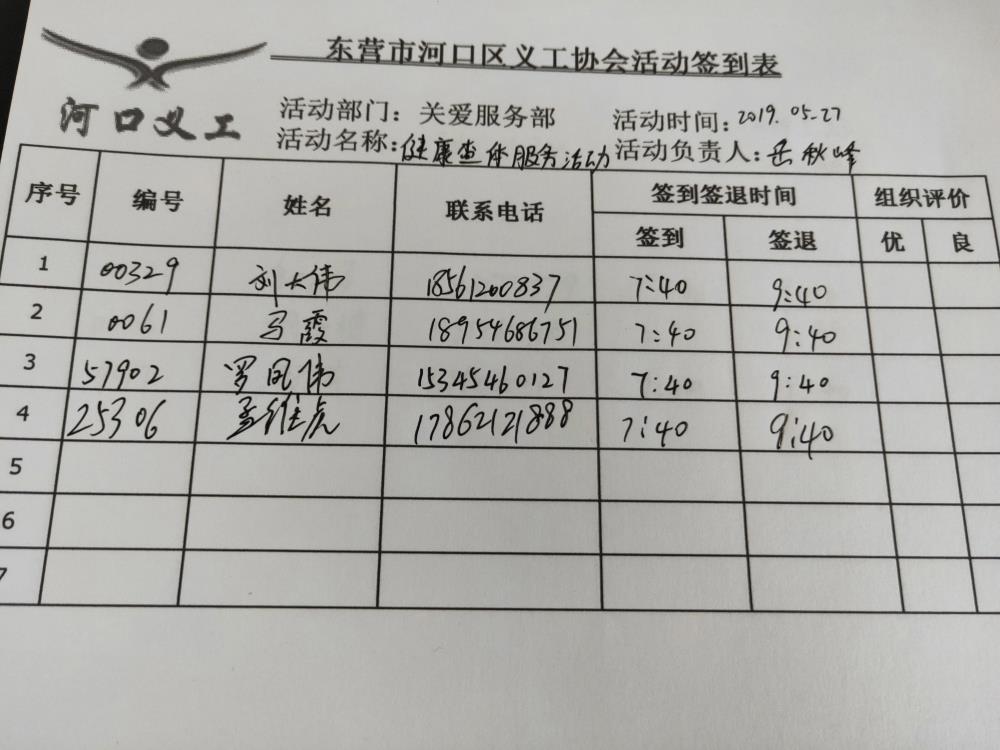 东营市河口区义工协会活动签到表
河口义工
活动部门：关爱服务部 活动时间：2019.05-27
活动名称：健康查体服务活动 活动负责人：岳秋峰
序号 编号 姓名 联系电话 签到签退时间 组织评价
签到 签退 优 良
1 00329 刘大伟 18561200837 7:40 9:40
2 0061 马霞 18954686751 7:40 9:40
3 57902 罗凤伟 15345460127 7:40 9:40
4 25306 孟维虎 17862121888 7:40 9:40
5
6
7